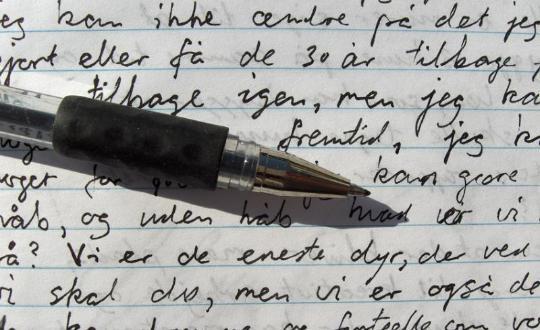 jeg kan ikke ændre på det jeg
gjort eller få de 30 år tilbage
tilbage igen, men jeg ka
fremtid, jeg k
meget for kan gøre
håb, og uden håb hvad er vi
så? Vi er de eneste dyr, der ved
vi skal dø, men vi er også de
fortælle som